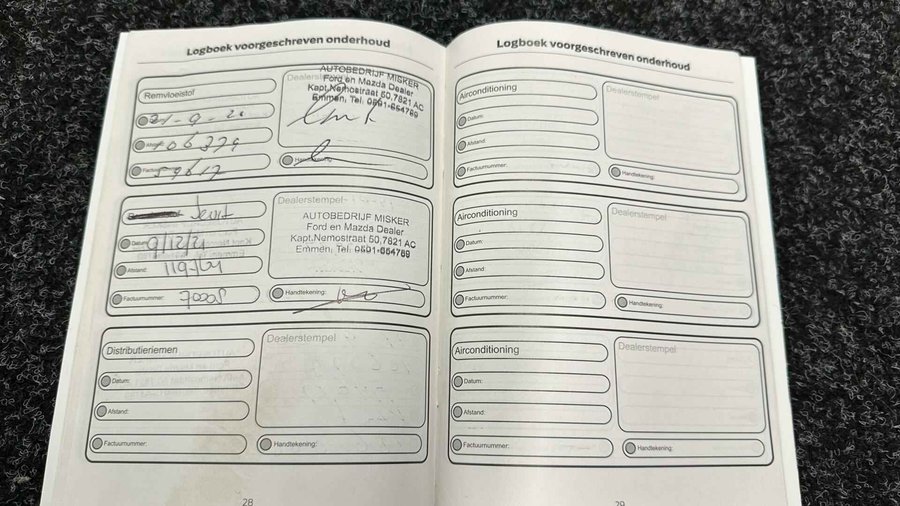 Logboek voorgeschreven onderhoud
Remvloeistof
Dealerstempel
AUTOBEDRIJF MISKER
Ford en Mazda Dealer
Kapt.Nemostraat 50,7821 AC
Emmen, Tel. 0591-654769
21-9-20
106379
Handtekening:
59617
Dealerstempel
AUTOBEDRIJF MISKER
Ford en Mazda Dealer
Kapt.Nemostraat 50,7821 AC
Emmen, Tel. 0591-654769
Datum:
Afstand:
Factuurnummer: 70008
Handtekening:
Distributieriemen
Dealerstempel
Datum:
Afstand:
Factuurnummer:
Handtekening:
28
Logboek voorgeschreven onderhoud
Airconditioning
Dealerstempel
Datum:
Afstand:
Factuurnummer:
Handtekening:
Airconditioning
Dealerstempel
Datum:
Afstand:
Factuurnummer:
Handtekening:
Airconditioning
Dealerstempel
Datum:
Afstand:
Factuurnummer:
Handtekening:
29